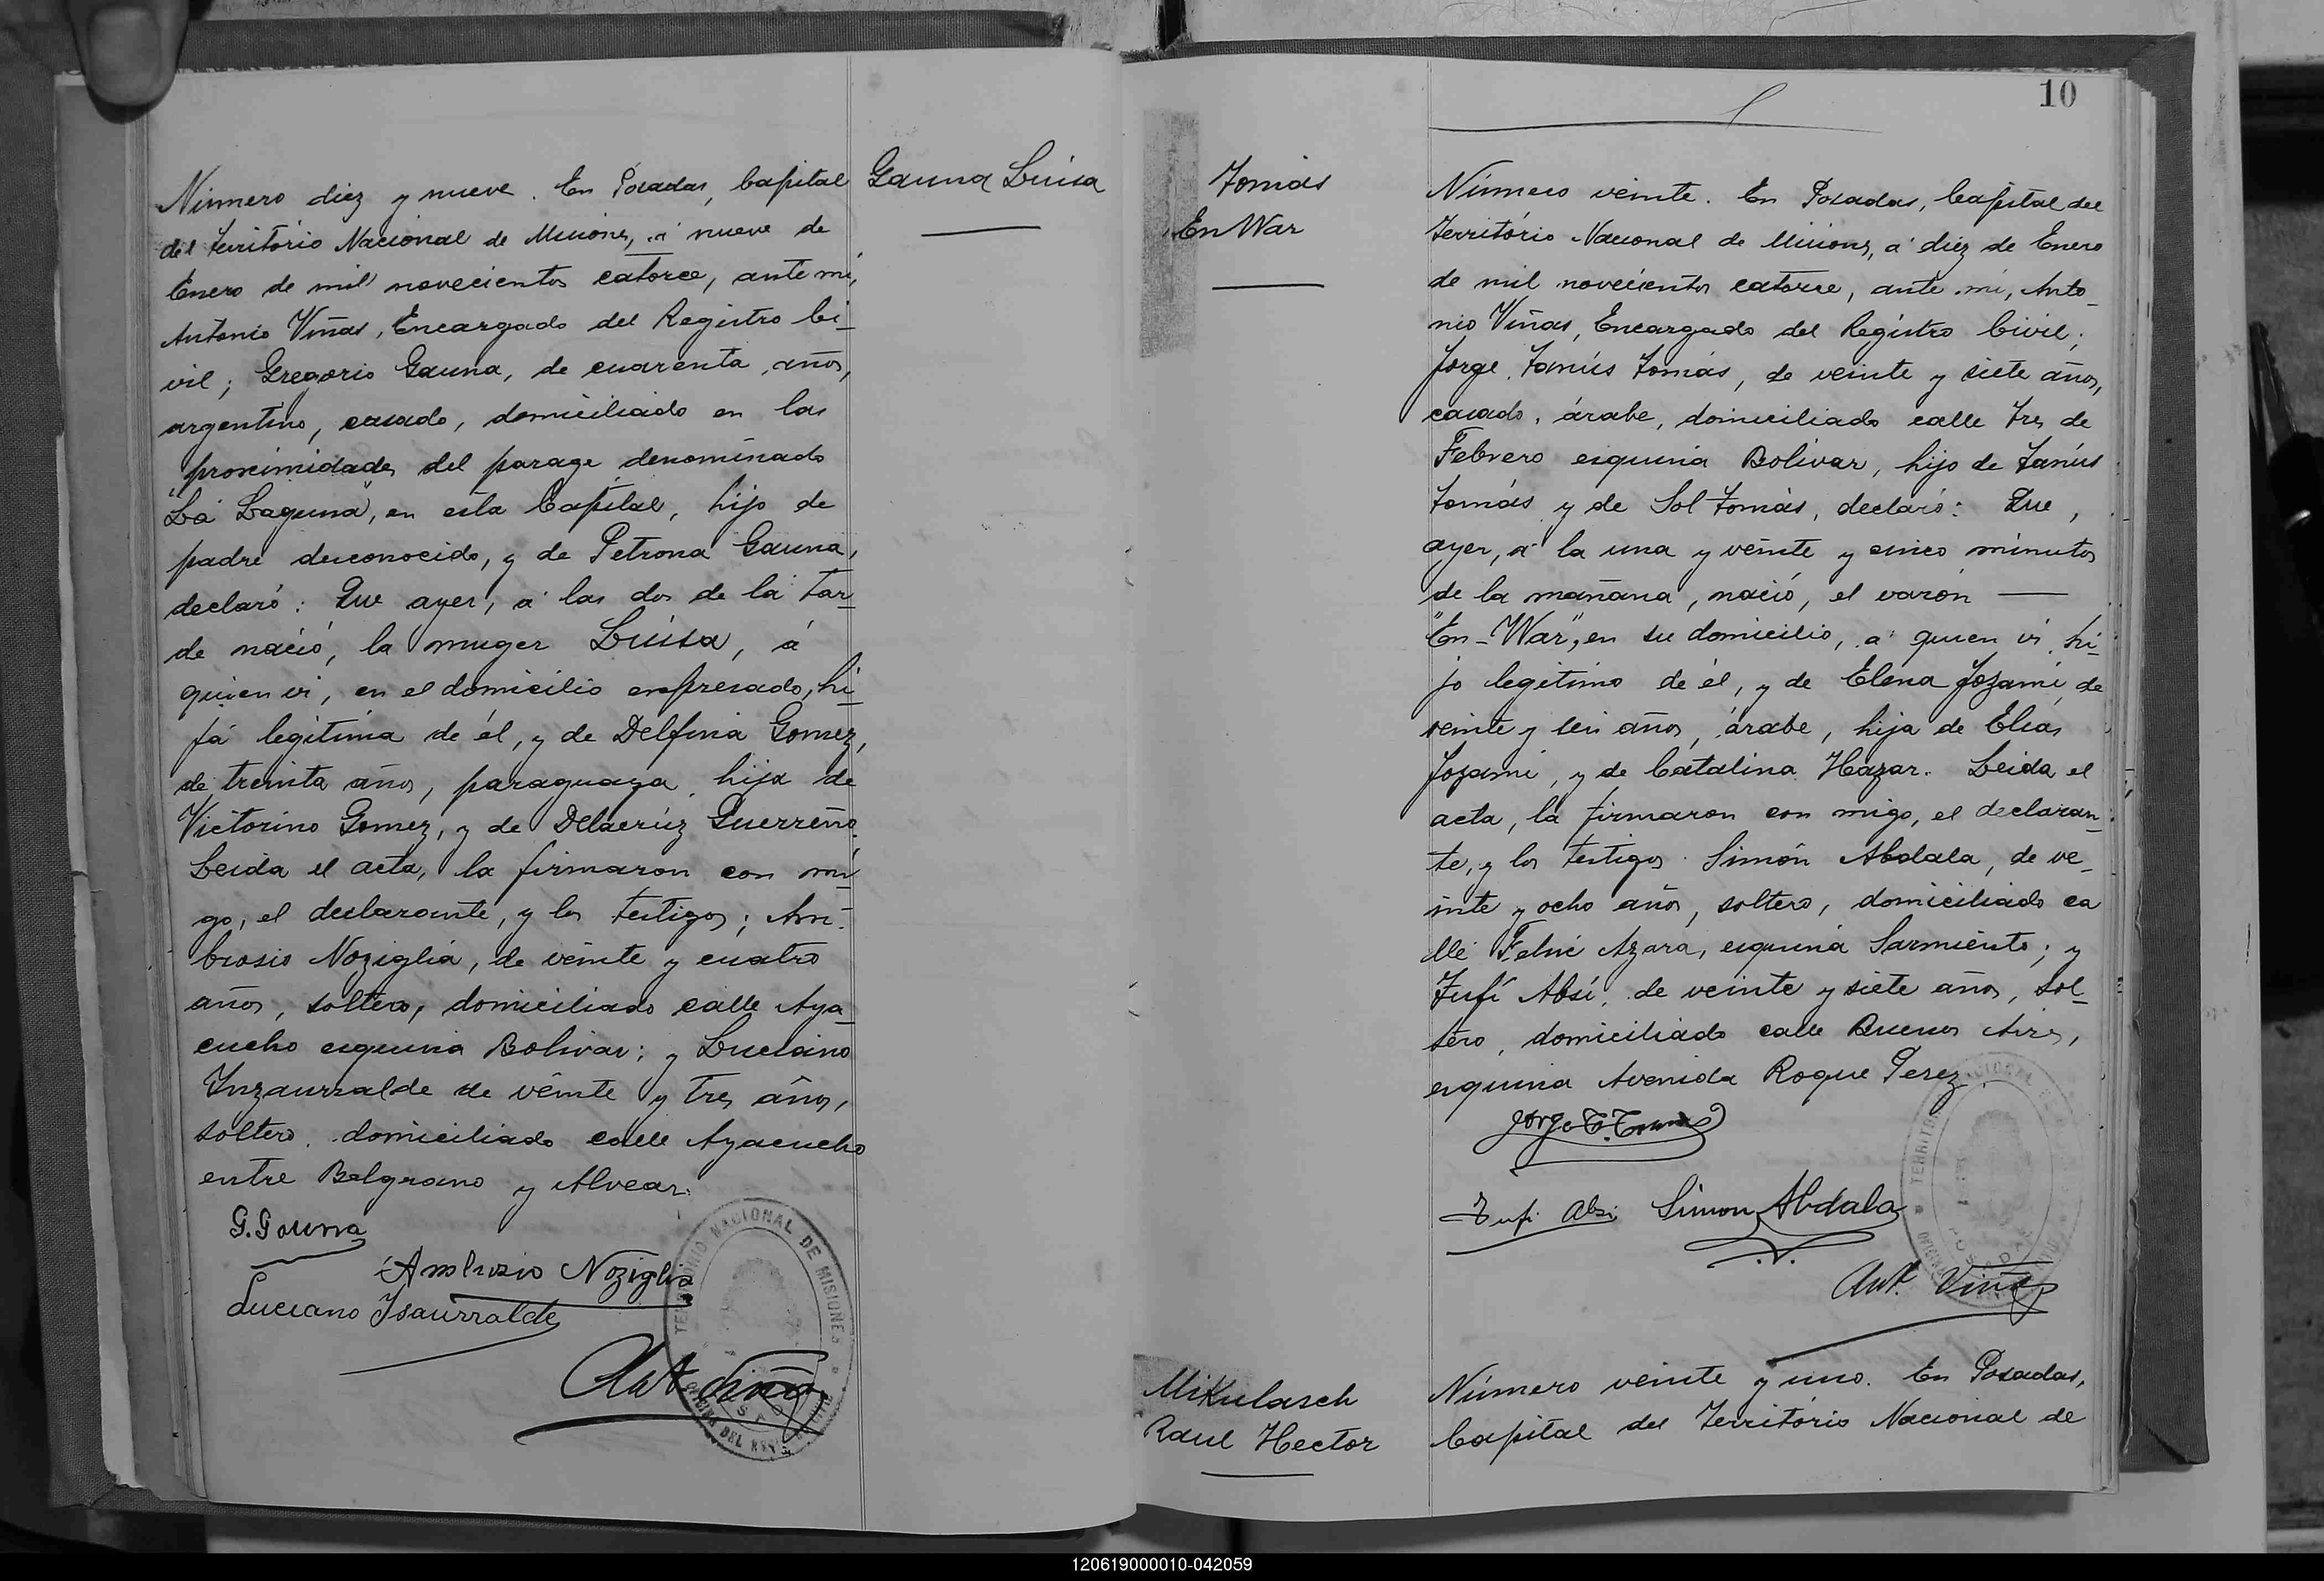 Gauna Luisa
Número diez y nueve. En Posadas, Capital
del Territorio Nacional de Misiones, á nueve de
Enero de mil novecientos catorce, ante mi,
Antonio Viñas, Encargado del Registro Ci-
vil; Gregorio Gauna, de cuarenta años,
argentino, casado, domiciliado en las
proximidades del parage denominado
"La Laguna", en esta Capital, hijo de
padre desconocido, y de Petrona Gauna,
declaró: Que ayer, á las dos de la tar-
de nació, la muger Luisa, á
quien vi, en el domicilio expresado, hi-
ja legítima de él, y de Delfina Gomez,
de treinta años, paraguaya, hija de
Victorino Gomez, y de Delacrúz Guerreño.
Leida el acta, la firmaron con mi-
go, el declarante, y los testigos; Am-
brosio Noziglia, de veinte y cuatro
años, soltero, domiciliado calle Aya-
cucho esquina Bolivar; y Luciano
Ynzaurralde de veinte y tres años,
soltero, domiciliado calle Ayacucho
entre Belgrano y Alvear.
G. Gauna
Ambrosio Noziglia
Luciano Ysaurralde
Ant Viñas
TERRITORIO NACIONAL DE MISIONES
OFICINA DEL REGISTRO CIVIL
10
Tomás
En War
Número veinte. En Posadas, Capital del
Território Nacional de Misiones, á diez de Enero
de mil novecientos catorce, ante mi, Anto-
nio Viñas, Encargado del Registro Civil;
Jorge Tanús Tomás, de veinte y siete años,
casado, árabe, domiciliado calle Tres de
Febrero esquina Bolivar, hijo de Tanús
Tomás y de Sol Tomás, declaró: Que,
ayer, á la una y veinte y cinco minutos
de la mañana, nació, el varón —
"En-War", en su domicilio, á quien vi, hi-
jo legítimo de él, y de Elena Jozami, de
veinte y seis años, árabe, hija de Elias
Jozami, y de Catalina Hazar. Leida el
acta, la firmaron con migo, el declaran-
te, y los testigos Simón Abdala, de ve-
inte y ocho años, soltero, domiciliado ca
lle Felix Azara, esquina Sarmiento; y
Tufí Absí, de veinte y siete años, sol-
tero, domiciliado calle Buenos Aires,
esquina Avenida Roque Perez.
Jorge T. Tomas
Tufi Absi Simon Abdala
Ant. Viñas
Mikulasch
Raul Hector
Número veinte y uno. En Posadas,
Capital del Território Nacional de
120619000010-042059